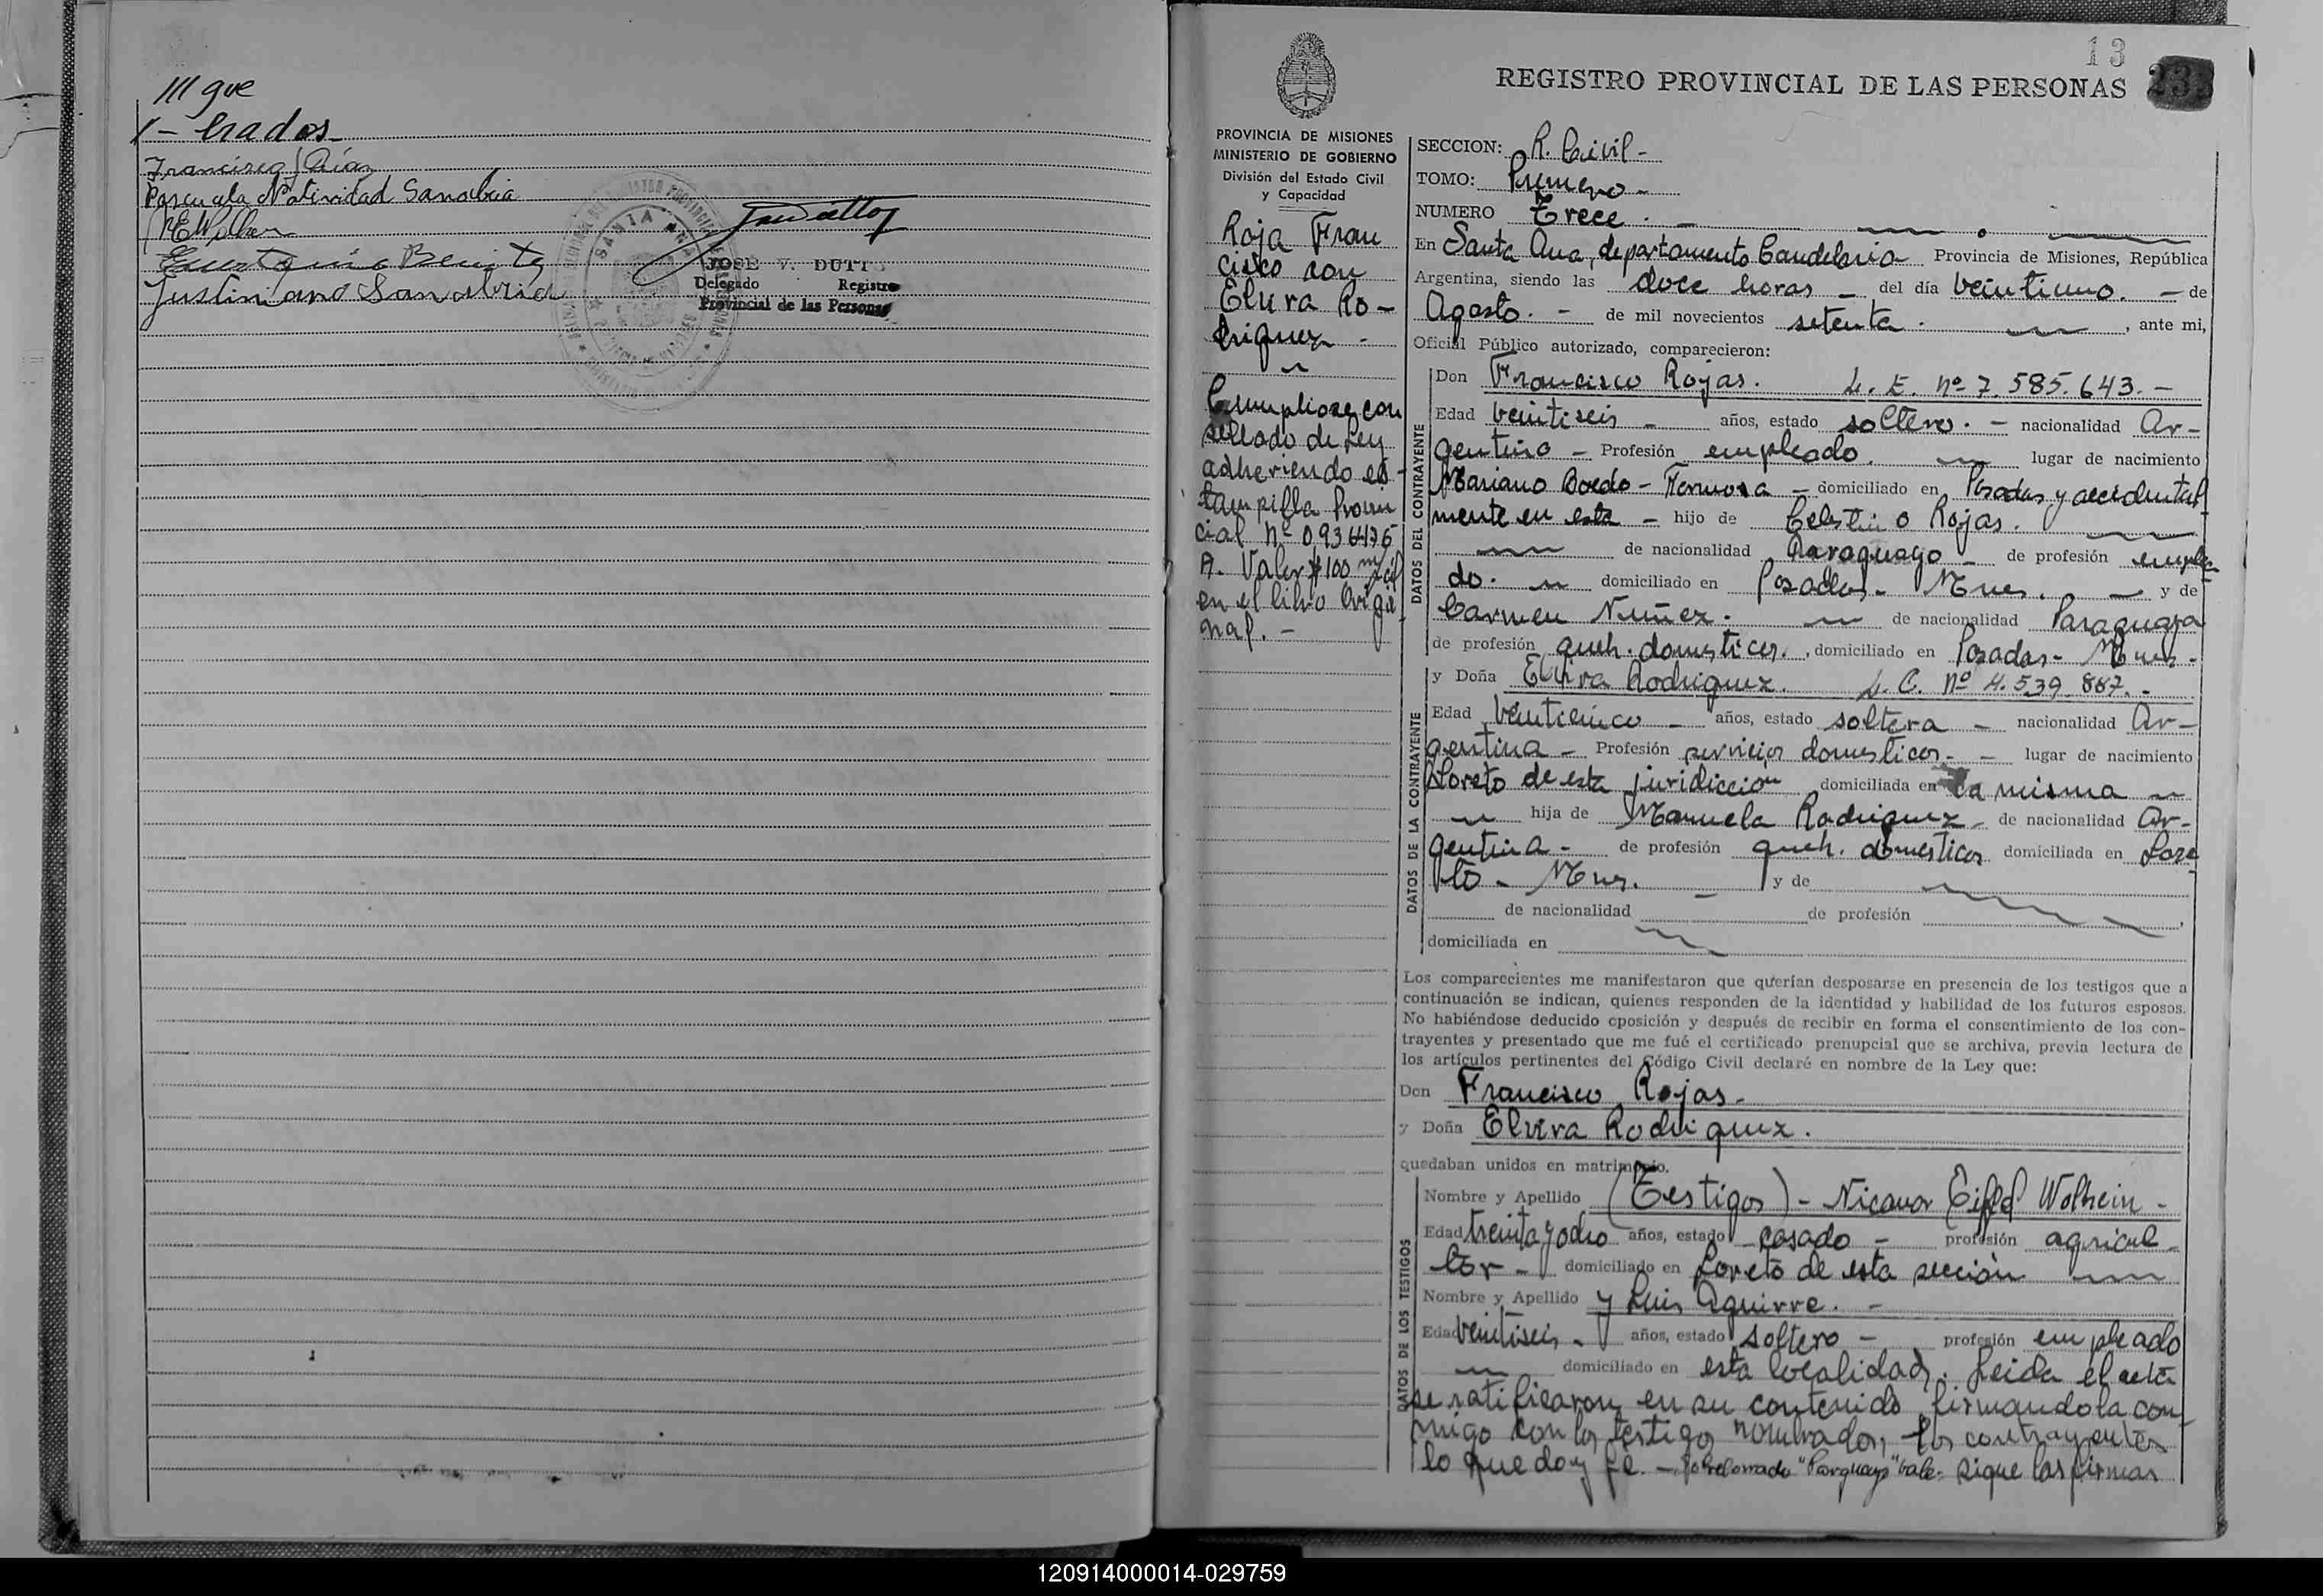 que
1 - trados
Francisco Díaz
Pascuala Natividad Sanabria
Justiniano Sanabria
SANTA ANA
JOSE V. DUTTO
Delegado Registro
Provincial de las Personas
13
REGISTRO PROVINCIAL DE LAS PERSONAS 23
PROVINCIA DE MISIONES
MINISTERIO DE GOBIERNO
División del Estado Civil
y Capacidad
Roja Fran
cisco con
Elvira Ro-
driguez -
Cumpliose con
sellado de Ley
adheriendo es-
tampilla Provin
cial Nº 0936476
A. Valor $ 100 m/
en el libro Origi
nal. -
SECCION: R. Civil -
TOMO: Primero -
NUMERO Trece . -
En Santa Ana, departamento Candelaria Provincia de Misiones, República
Argentina, siendo las doce horas - del día veintiuno. - de
Agosto. - de mil novecientos setenta. , ante mi,
Oficial Público autorizado, comparecieron:
DATOS DEL CONTRAYENTE
Don Francisco Rojas. L. E. nº 7.585.643. -
Edad veintiseis - años, estado soltero. - nacionalidad Ar-
gentino - Profesión empleado. lugar de nacimiento
Mariano Boedo - Formosa - domiciliado en Posadas y accidental
mente en esta - hijo de Celestino Rojas.
de nacionalidad Paraguayo - de profesión emplea
do. domiciliado en Posadas - Mnes. - y de
Carmen Nuñez. de nacionalidad Paraguaya
de profesión queh. domesticos. , domiciliado en Posadas - Mnes -
DATOS DE LA CONTRAYENTE
y Doña Elvira Rodriguez. L. C. nº 4.539.887. -
Edad veinticinco - años, estado soltera - nacionalidad Ar-
gentina - Profesión servicios domesticos - - lugar de nacimiento
Loreto de esta juridiccion domiciliada en la misma
hija de Manuela Rodriguez - de nacionalidad Ar-
gentina - de profesión queh. domesticos domiciliada en Lore
to - Mnes. - y de
de nacionalidad de profesión ,
domiciliada en
Los comparecientes me manifestaron que querían desposarse en presencia de los testigos que a
continuación se indican, quienes responden de la identidad y habilidad de los futuros esposos.
No habiéndose deducido oposición y después de recibir en forma el consentimiento de los con-
trayentes y presentado que me fué el certificado prenupcial que se archiva, previa lectura de
los artículos pertinentes del Código Civil declaré en nombre de la Ley que:
Don Francisco Rojas -
y Doña Elvira Rodriguez.
quedaban unidos en matrimonio.
DATOS DE LOS TESTIGOS
Nombre y Apellido (Testigos) - Nicanor Eifel Wolhein -
Edad treinta y ocho años, estado casado - profesión agricul
tor - domiciliado en Loreto de esta sección
Nombre y Apellido y Luis Aguirre. -
Edad veintiseis - años, estado soltero - profesión empleado
domiciliado en esta localidad. Leida el acta
se ratificaron en su contenido firmandola con
migo con los testigos nombrados, los contrayentes
lo que doy fe. - Sobreborrado "Paraguayo" vale - sigue las firmas
120914000014-029759